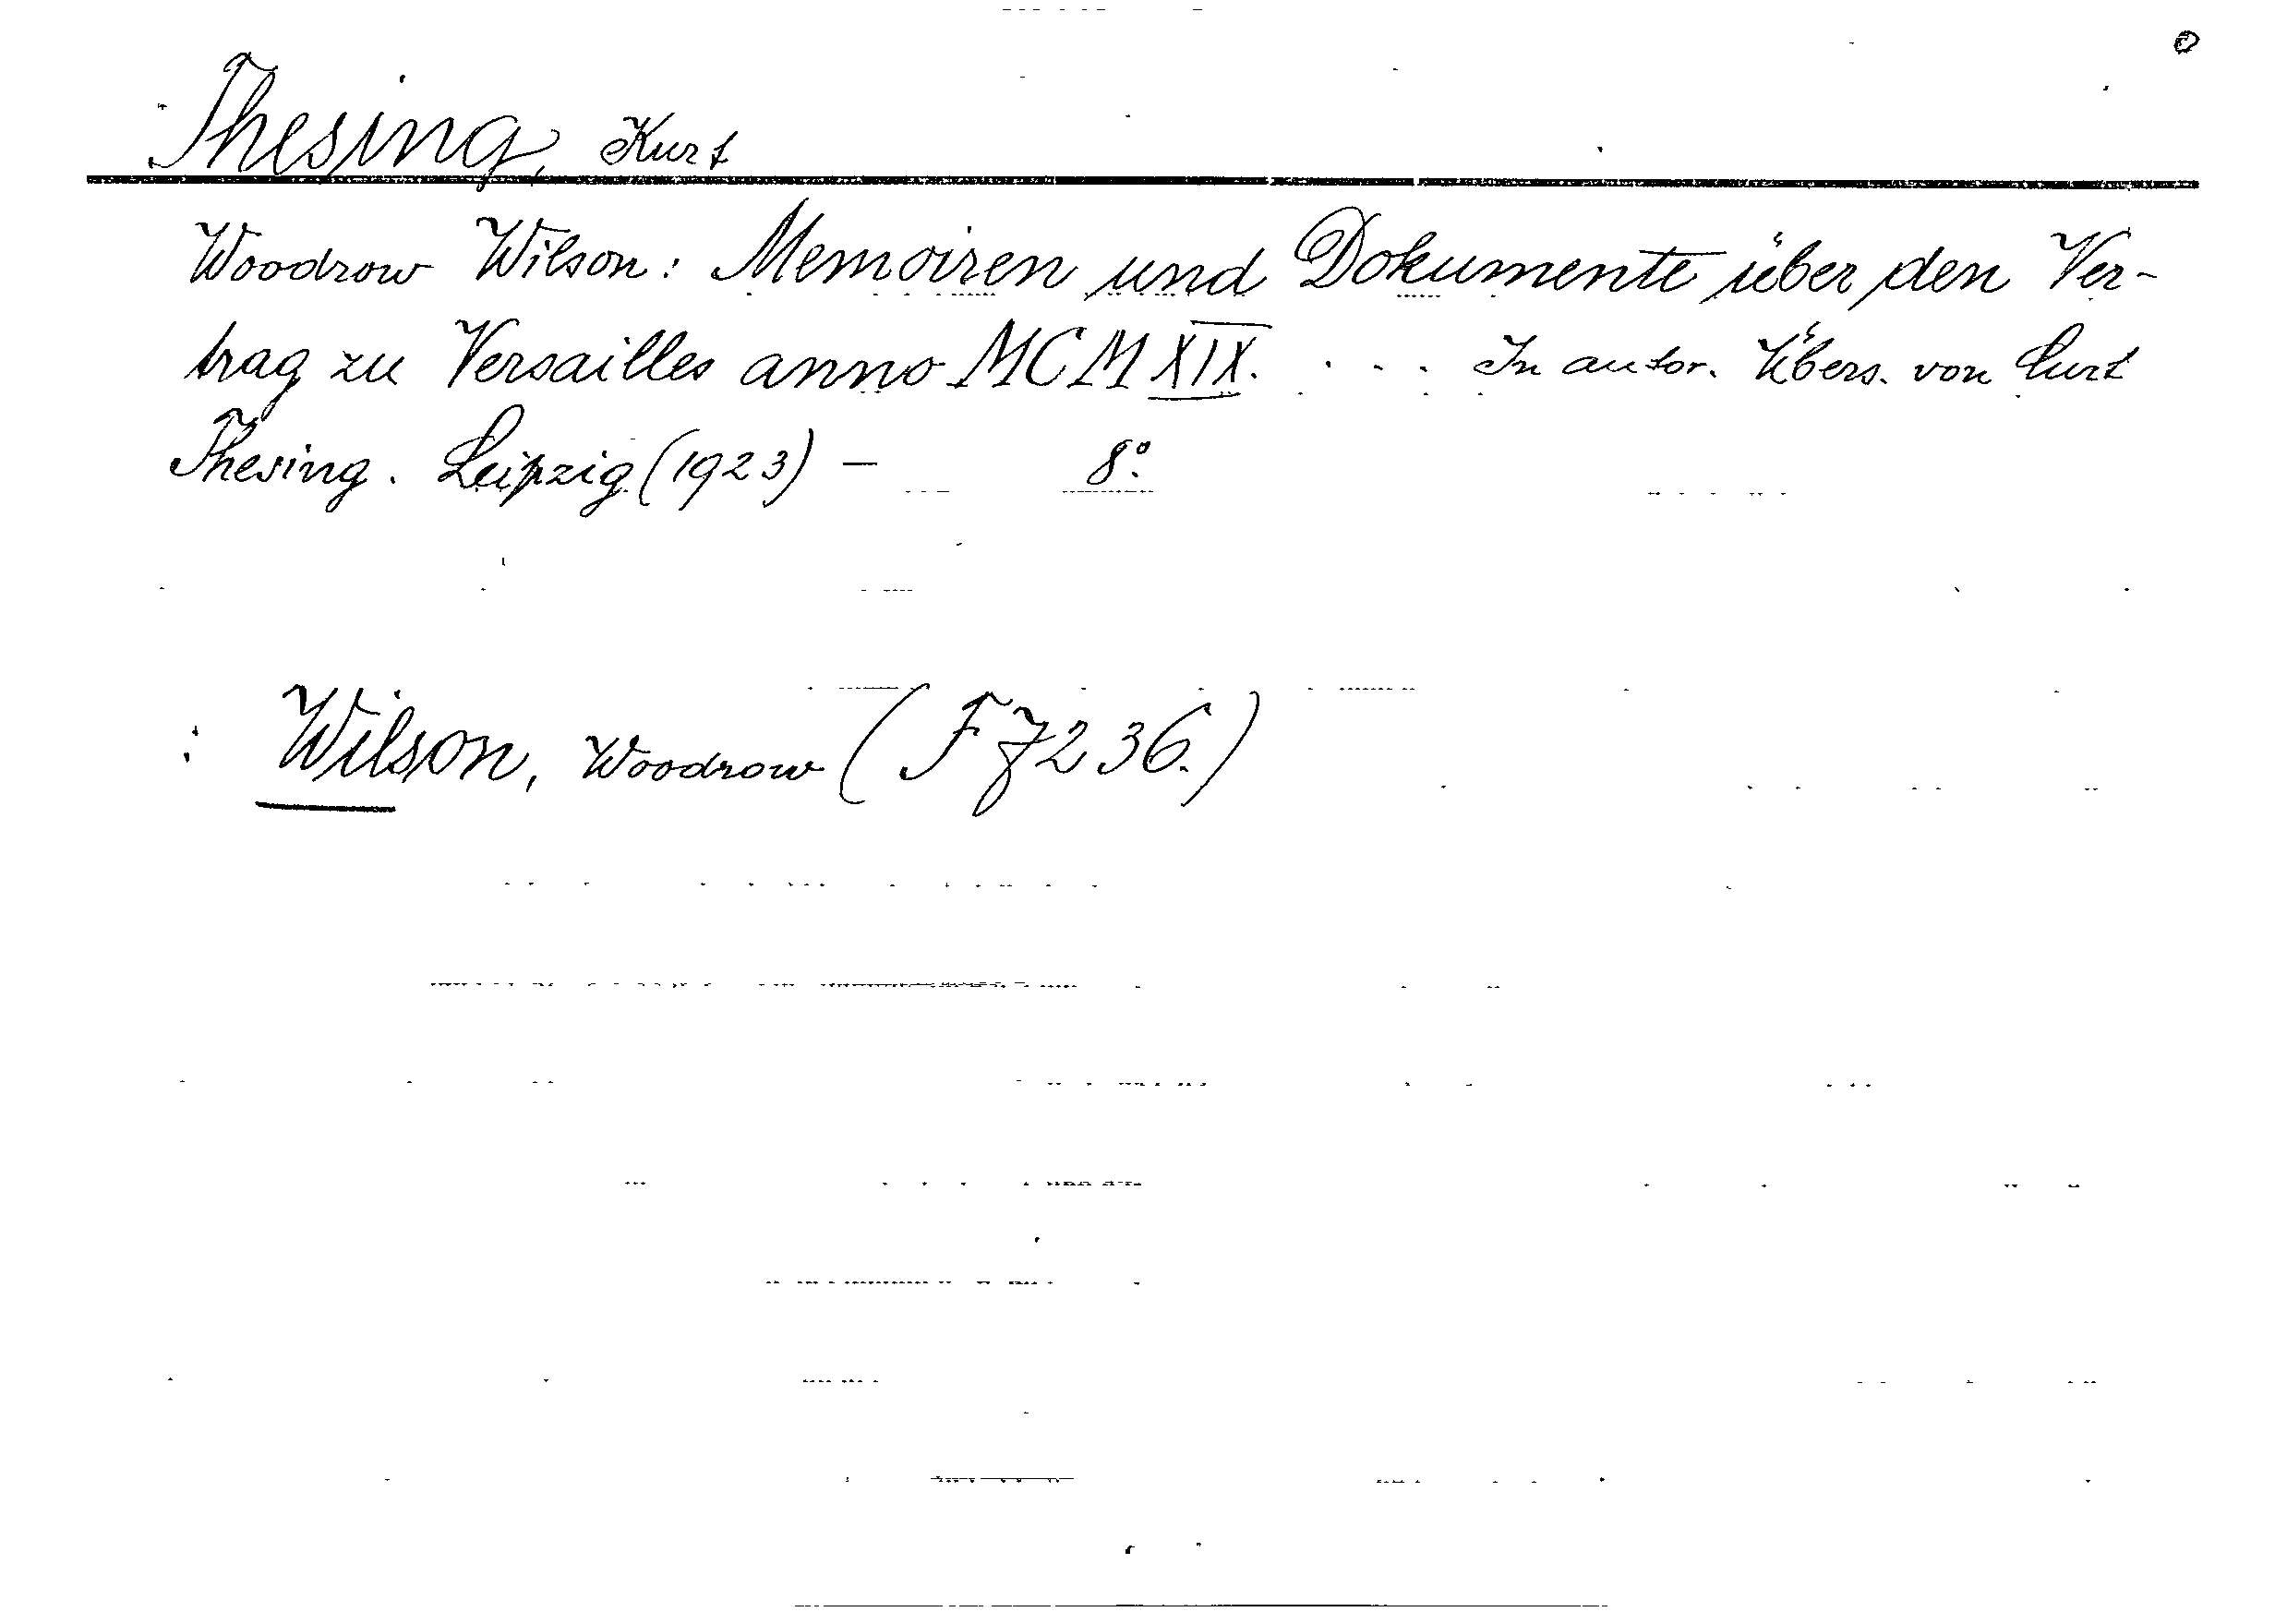 Thesing, Kurt
Woodrow Wilson: Memoiren und Dokumente über den Ver-
trag zu Versailles anno MCMXIX. . . . In autor. Übers. von Curt
Thesing. Leipzig (1923) — 8°.
: Wilson, Woodrow (F 7236.)